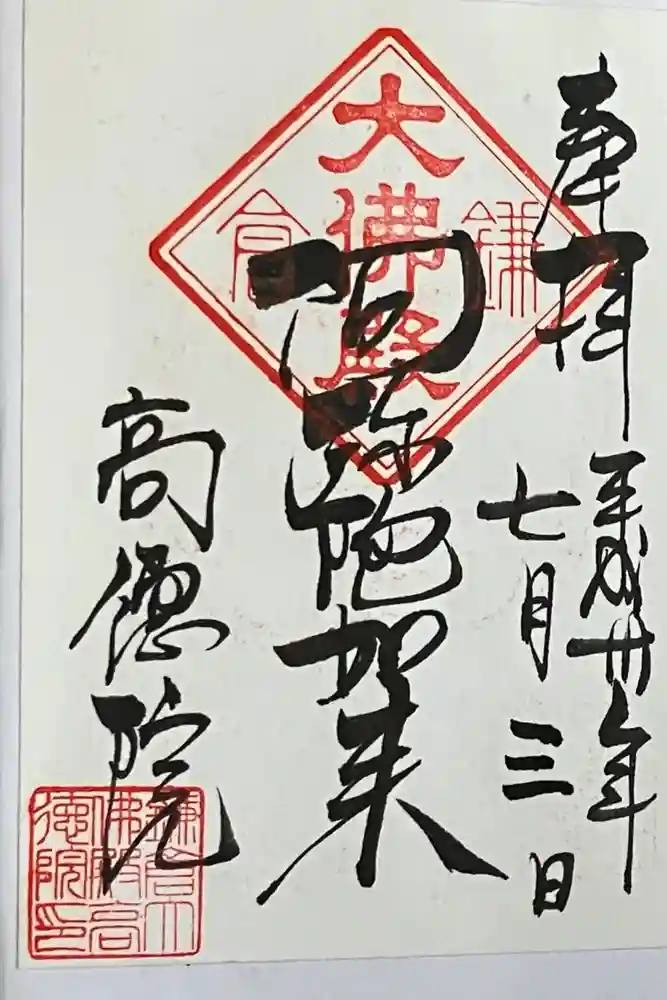 奉拝
平成卅年
七月三日
大佛殿
鎌倉
阿弥陀如来
高德院
鎌倉大佛殿高德院印